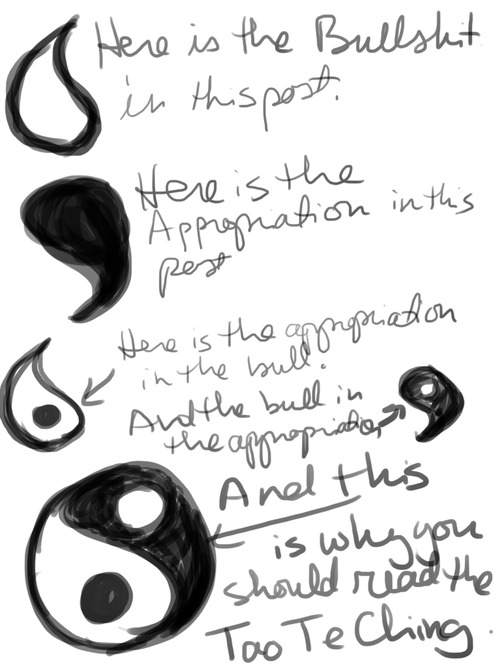 Here is the Bullshit
in this post.
Here is the
Appropriation in this
post
Here is the appropriation
in the bull.
And the bull in
the appropriation
And this
is why you
should read the
Tao Te Ching.